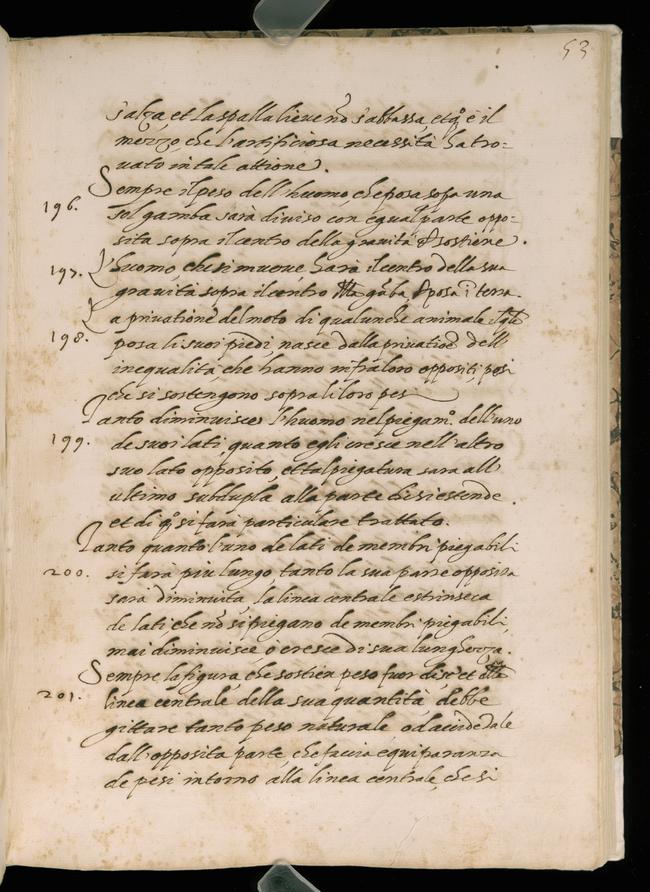 53
s'alza et la spalla lieve nō s'abbassa, et q.º è il
mezzo, che l'artificiosa necessità ha tro=
vato in tale attione.
Sempre il peso dell'huomo, che posa sopa una
196.
sol gamba sarà diuiso con egual parte oppo-
sita sopra il centro della gravità ch sostiene.
197. L'huomo, che si muove, harà il centro della sua
gravità sopra il centro della gāba ch posa ī terra.
La privatione del moto di qualunche animale, il qle
198.
posa li suoi piedi, nasce dalla privatioē dell'
inequalità, che hanno infra loro oppositi pesi
che si sostengono sopra li loro pesi
Tanto diminuisce l'huomo nel piegam.º dell'uno
199.
de suoi lati, quanto egli cresce nell'altro
suo lato opposito, et tal piegatura sara all'
ultimo subdupla alla parte che si estende.
et di q.º si farà particulare trattato.
Tanto quanto l'uno de lati de membri piegabili
200.
si farà piu lungo, tanto la sua parte opposita
sarà diminuita, la linea centrale estrinseca
de lati, che nō si piegano de membri piegabili,
mai diminuisce, o cresce di sua lunghezza.
Sempre la figura, che sostien peso fuor di se et della
201.
linea centrale della sua quantità debbe
gittare tanto peso naturale, od accidētale
dall'opposita parte, che faccia equiparanza
de pesi intorno alla linea centrale, che si